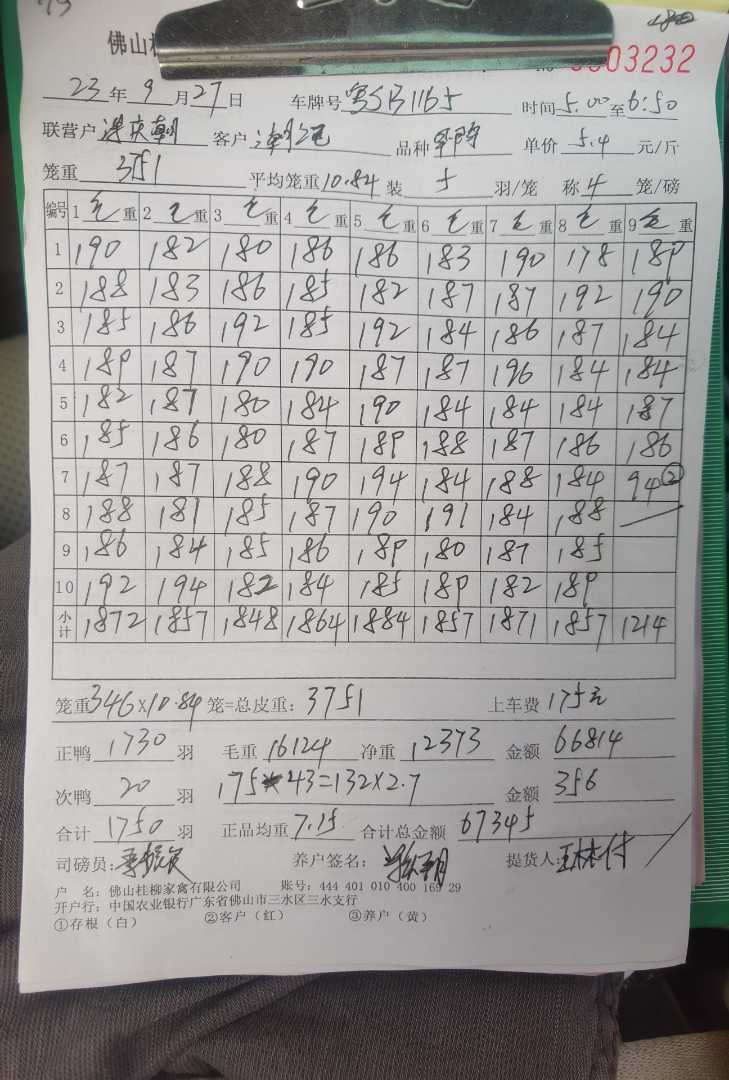 佛山桂
0003232
23年9月27日 车牌号粤 1165 时间5.00至6:50
联营户 客户 品种 单价5.4元/斤
笼重3751 平均笼重10.84装5羽/笼 称4笼/磅
编号 1毛重 2毛重 3毛重 4毛重 5毛重 6毛重 7毛重 8毛重 9毛重
1 190 182 180 186 186 183 190 178 189
2 188 183 186 185 182 187 187 192 190
3 185 186 192 185 192 184 186 187 184
4 189 187 190 190 187 187 196 184 184
5 182 187 180 184 190 184 184 184 187
6 185 186 180 187 189 188 187 186 186
7 187 187 188 190 194 184 188 184 94②
8 188 181 185 187 190 191 184 188
9 186 184 185 186 189 180 187 185
10 192 194 182 184 185 189 182 189
小计 1872 1857 1848 1864 1884 1857 1871 1857 1214
笼重346×10.84笼=总皮重:3751 上车费175元
正鸭1730羽 毛重16124 净重12373 金额66814
次鸭20羽 175-43=132×2.7 金额356
合计1750羽 正品均重7.15 合计总金额67345
司磅员: 养户签名: 提货人:
户 名:佛山桂柳家禽有限公司 账号:444 401 010 400 169 29
开户行:中国农业银行广东省佛山市三水区三水支行
①存根(白) ②客户(红) ③养户(黄)